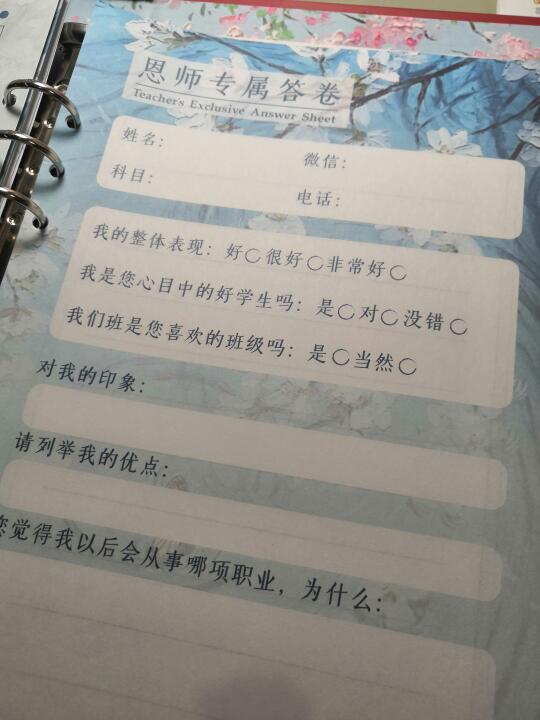 恩师专属答卷
Teacher's Exclusive Answer Sheet
姓名： 微信：
科目： 电话：
我的整体表现：好○很好○非常好○
我是您心目中的好学生吗：是○对○没错○
我们班是您喜欢的班级吗：是○当然○
对我的印象：
请列举我的优点：
您觉得我以后会从事哪项职业，为什么：